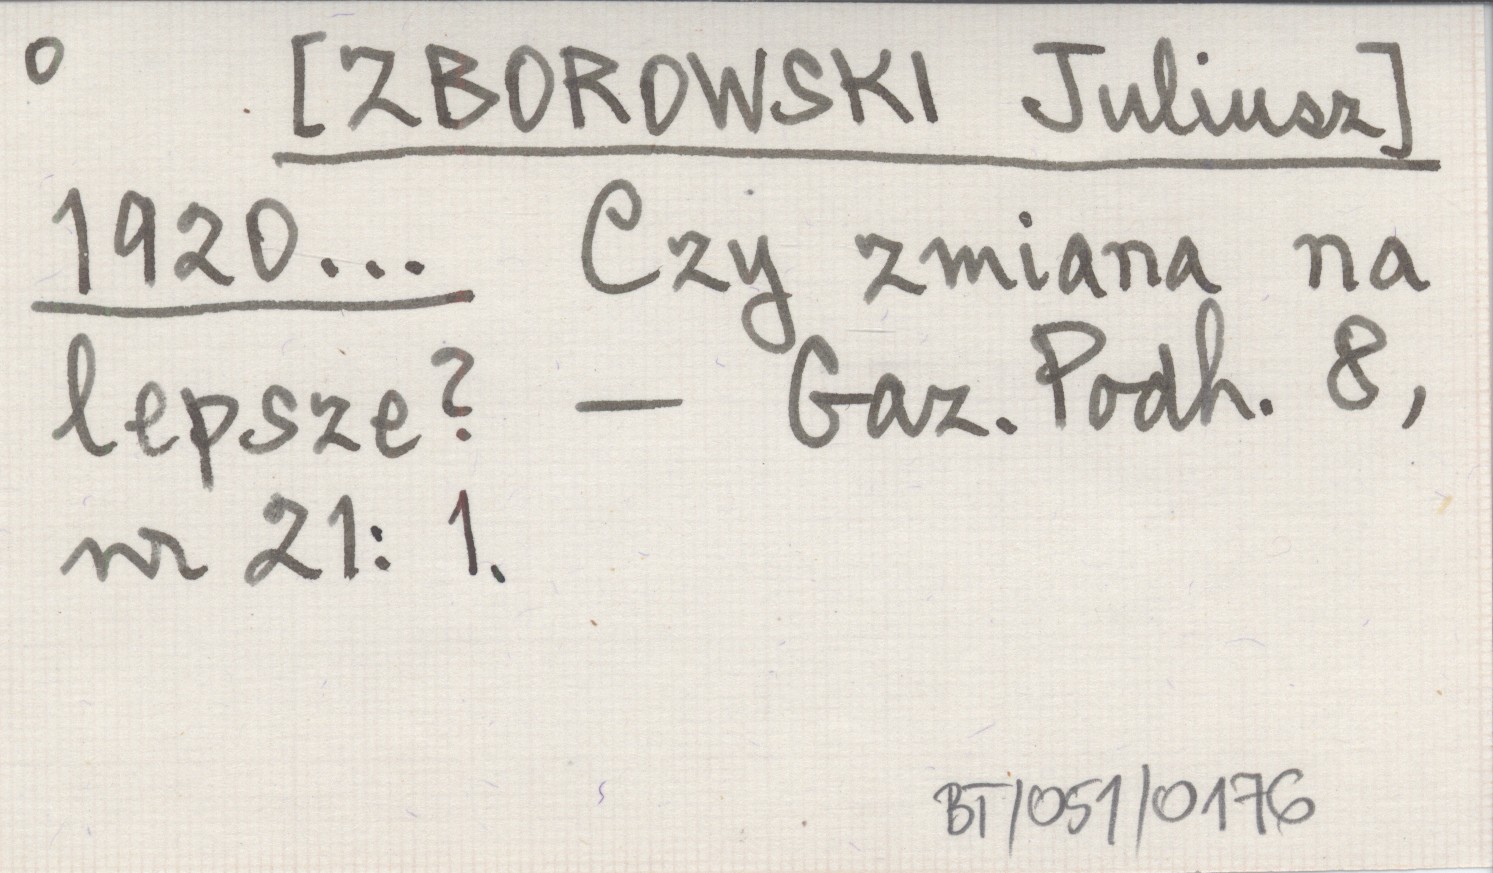 o [ZBOROWSKI Juliusz]
1920... Czy zmiana na
lepsze? — Gaz. Podh. 8,
nr 21: 1.
BT/051/0176